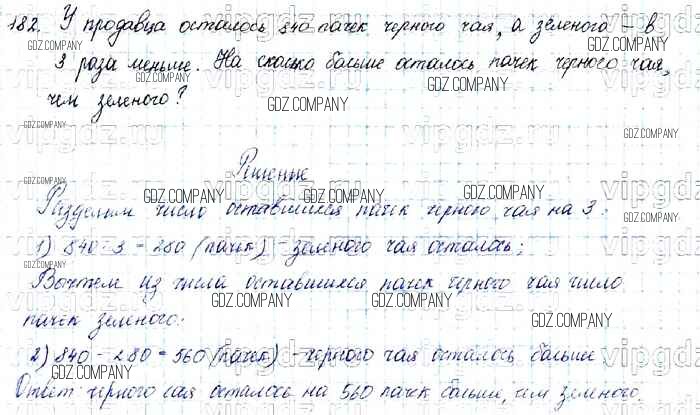 182. У продавца осталось 840 пачек черного чая, а зеленого - в
3 раза меньше. На сколько больше осталось пачек черного чая,
чем зеленого?
Решение
Разделим число оставшихся пачек черного чая на 3:
1) 840 : 3 = 280 (пачек) - зеленого чая осталось;
Вычтем из числа оставшихся пачек черного чая число
пачек зеленого:
2) 840 - 280 = 560 (пачек) - черного чая осталось больше
Ответ: черного чая осталось на 560 пачек больше, чем зеленого.
GDZ.COMPANY
vipgdz.ru